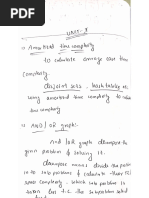 UNIT-I
1) Amortized time complexity
to calculate average case time
complexity.
disjoint sets, hash tables etc
using amortized time complexity to calculate
time complexity
AND / OR graph:
AND / OR graph decompose the
given problem & solving it.
decompose means divide the problem
in to sub problems & calculate
complexity. which sub problem is
taken less T.C the sub problem select